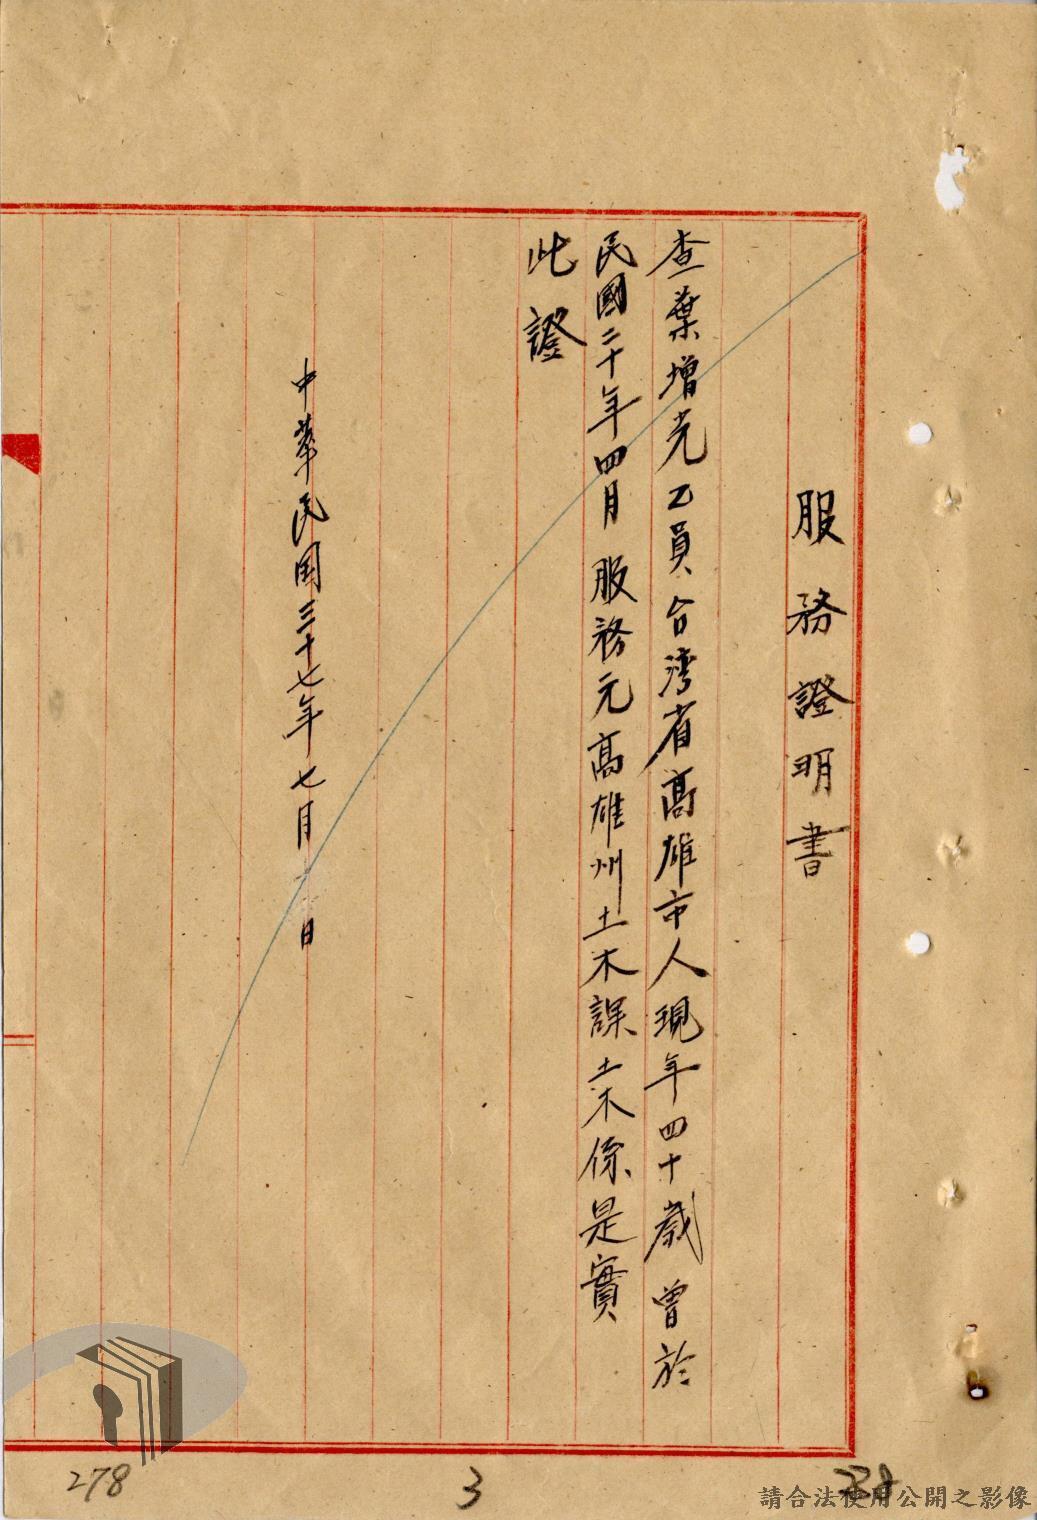 服務證明書
查葉增光乙員台湾省高雄市人現年四十歲曾於
民國二十年四月服務元高雄州土木課土木係是實
此證
中華民国三十七年七月 日
278
3
請合法使用公開之影像